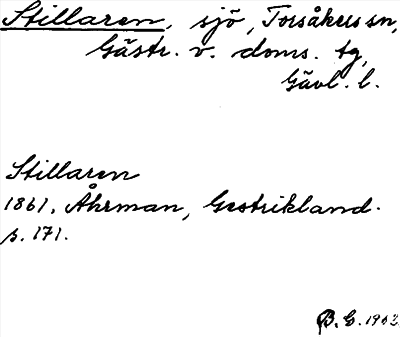 Stillaren, sjö, Torsåkers sn,
Gästr. v. doms. tg,
Gävl. l.
Stillaren
1861. Åhrman, Gestrikland.
s. 171.
B. G. 1962.